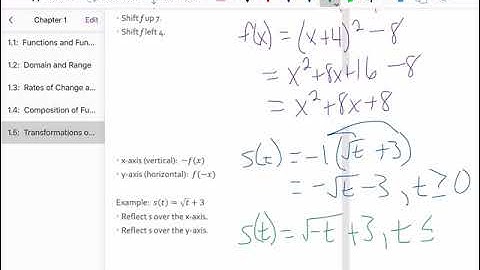 Chapter 1
Edit
1.1: Functions and Fun...
1.2: Domain and Range
1.3: Rates of Change a...
1.4: Composition of Fu...
1.5: Transformations o...
• Shift f up 7.
• Shift f left 4.
• x-axis (vertical): −f(x)
• y-axis (horizontal): f(−x)
Example: s(t) = √t + 3
• Reflect s over the x-axis.
• Reflect s over the y-axis.
f(x) = (x+4)² − 8
= x² + 8x + 16 − 8
= x² + 8x + 8
s(t) = −1(√t + 3)
= −√t − 3, t ≥ 0
s(t) = √−t + 3, t ≤